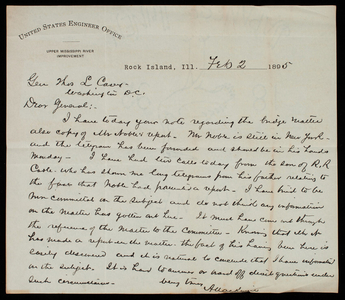 UNITED STATES ENGINEER OFFICE
UPPER MISSISSIPPI RIVER
IMPROVEMENT.
Rock Island, Ill. Feb 2 1895
Gen Thos L Casey
Washington D.C.
Dear General:
I have today your note regarding the bridge matter
also copy of Mr Noble's report. Mr Noble is still in New York
and the telegram has been forwarded and should be in his hands
Monday - I have had two calls today from the son of R.R.
Cable. Who has shown me long telegrams from his father relating to
the fact that Noble had made a report. I have tried to be
non committal on the subject and do not think any information
on the matter has gotten out here. It must have come out through
the reference of the matter to the Committee. Knowing that Mr N
has made a report on the matter. the fact of his having been here is
easily discerned and it is natural to conclude that I have information
on the subject. It is hard to answer or ward off direct questions under
such circumstances. Very truly